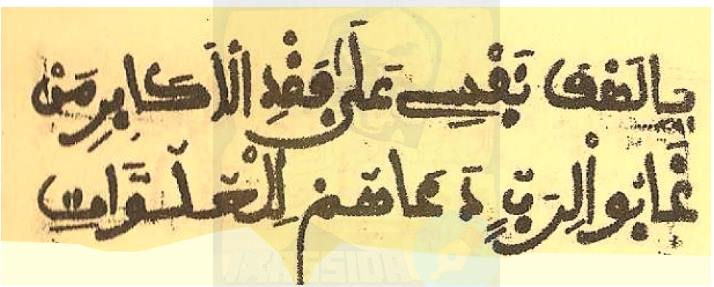 يالهف نَفْسِي عَلَى فَقْدِ الْأَكَابِرِ مَنْ
غَابُو الِرَبٍّ دَعَاهُمْ لِلْعَلَوَاتِ